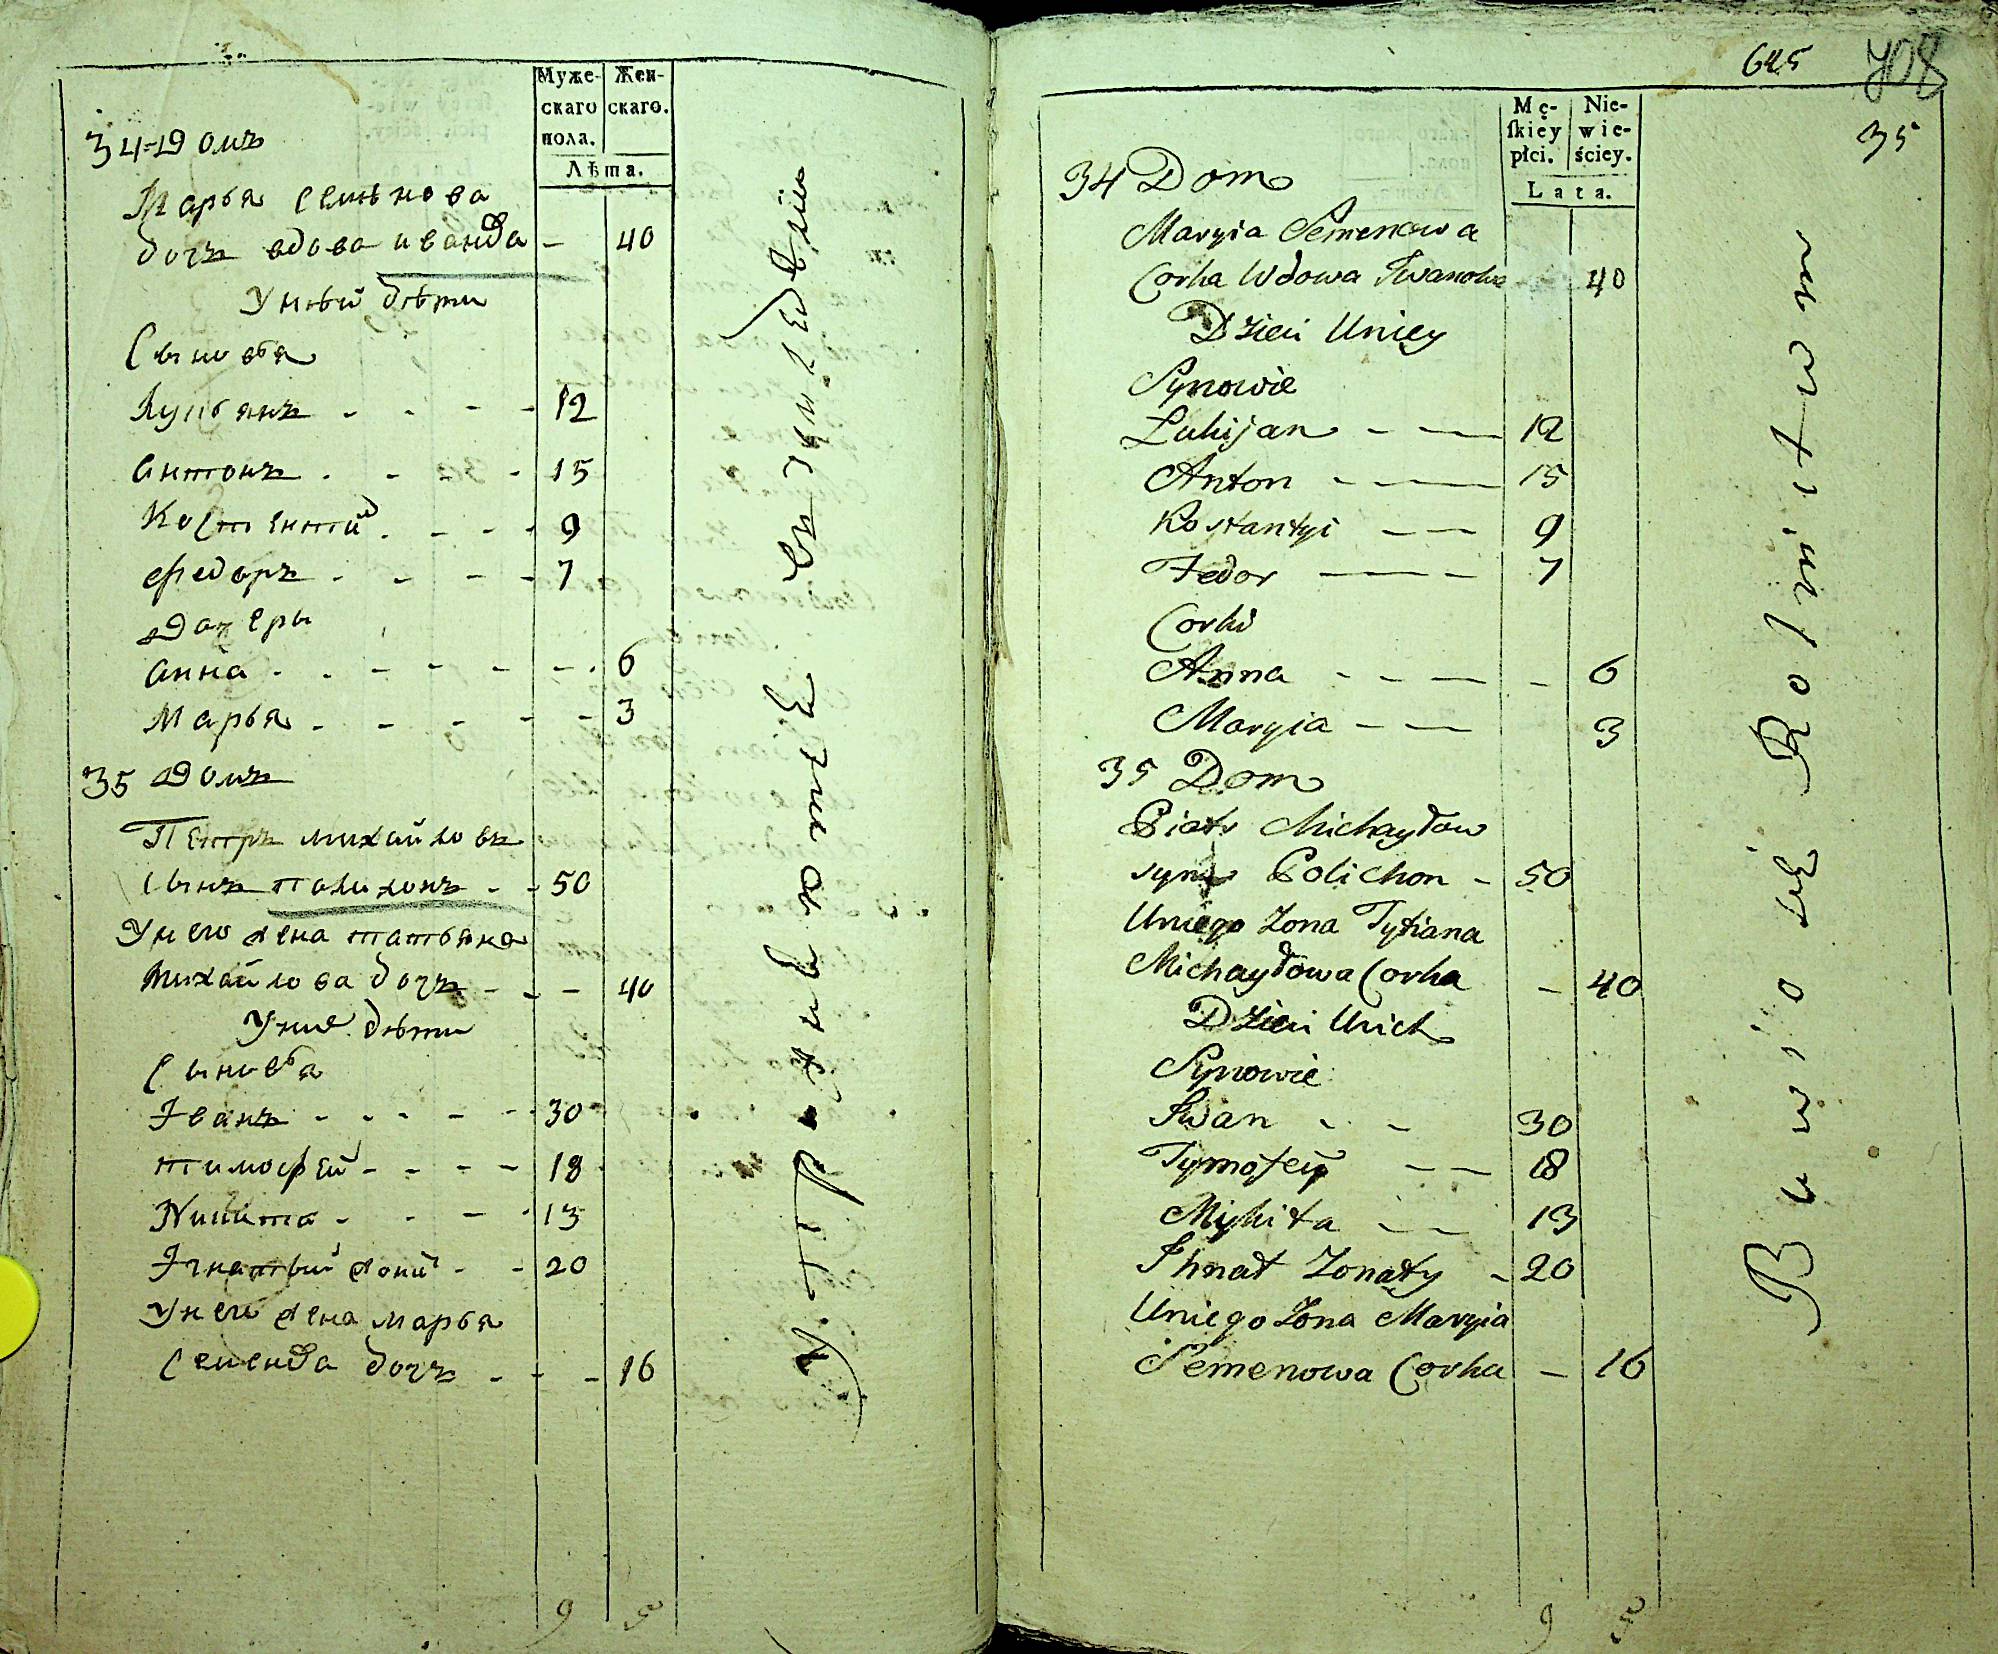 Муже-
скаго
пола.
Жен-
скаго.
Лѣта.
34 Домъ
Марья Семѣнова
дочъ вдова иванова — 40
Унѣй дѣти
Сыновья
Лукьянъ - - - - 12
антонъ - - - 15
Костентий - - - 9
федоръ - - - - 7
Дочеры
анна - - - - - - 6
Марья - - - - - 3
35 Домъ
Петръ михайловъ
сынъ полихонъ - - 50
Унего жена татьяна
михайлова дочъ - - - 40
Уних дѣти
Сыновья
Іванъ - - - - - 30
тимофей - - - - 18
Никита - - - - 13
Ігнатий жони - - 20
Унего жена марья
Семенова дочъ - - - 16
9
5
645
708
35
Mę-
ſkiey
płci.
Nie-
wie-
ściey.
Lata.
34 Dom
Maryia Semenowa
Corka Wdowa Iwanowa 40
Dzieci Uniey
Synowie
Lukijan - — — 12
Anton - - — — 15
Kostantyi — — 9
Fedor — — - 7
Corki
Anna - - — — - 6
Maryia - — — 3
35 Dom
Piotr Michayłow
syn Polichon - 50
Uniego Zona Tytiana
Michayłowa Corka - 40
Dzieci Unich
Synowie
Iwan - - 30
Tymofeiy — — 18
Mykita — — 13
Ihnat Zonaty - 20
Uniego Zona Maryia
Semenowa Corka — 16
9
5
Bawio się Rolnictwem